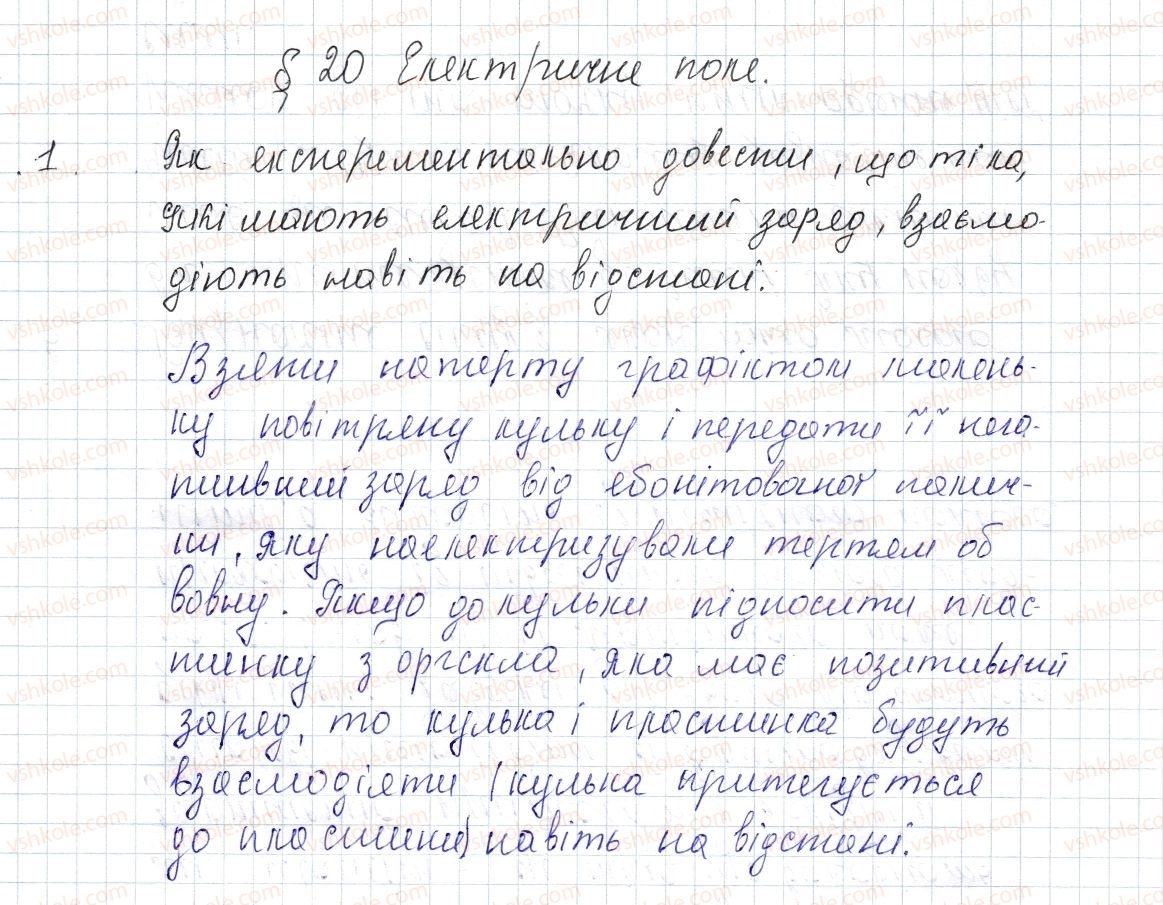 § 20 Електричне поле.
1. Як експерементально довести, що тіла,
які мають електричний заряд, взаємо-
діють навіть на відстані.
Взяти натерту графіктом малень-
ку повітряну кульку і передати її нега-
тивний заряд від ебонітованої палич-
ки, яку наелектризували тертям об
вовну. Якщо до кульки підносити плас-
тинку з оргскла, яка має позитивний
заряд, то кулька і пластинка будуть
взаємодіяти (кулька притягується
до пластини) навіть на відстані.